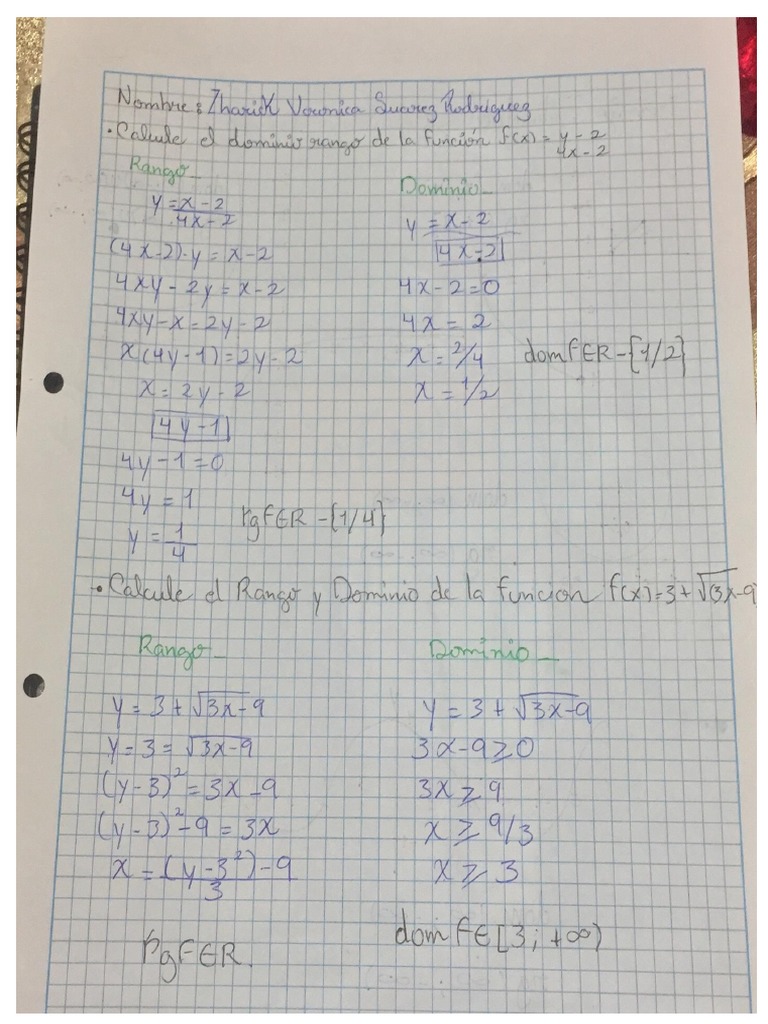 Nombre: Zharick Veronica Suarez Rodriguez
• Calcule el dominio rango de la función f(x) = y - 2 / 4x - 2
Rango_
y = x - 2 / 4x - 2
(4x-2)·y = x-2
4xy - 2y = x-2
4xy - x = 2y - 2
x(4y-1) = 2y - 2
x = 2y - 2 / 4y - 1
4y - 1 = 0
4y = 1
y = 1/4
rgf∈R - {1/4}
Dominio_
y = x - 2 / 4x - 2
4x - 2 = 0
4x = 2
x = 2/4
x = 1/2
domf∈R - {1/2}
• Calcule el Rango y Dominio de la funcion f(x) = 3 + √(3x-9
Rango_
y = 3 + √3x-9
y = 3 = √3x-9
(y-3)² = 3x - 9
(y-3)² - 9 = 3x
x = (y-3²) - 9 / 3
Rgf∈R.
Dominio_
y = 3 + √3x-9
3x - 9 ≥ 0
3x ≥ 9
x ≥ 9/3
x ≥ 3
domf∈[3; +∞)